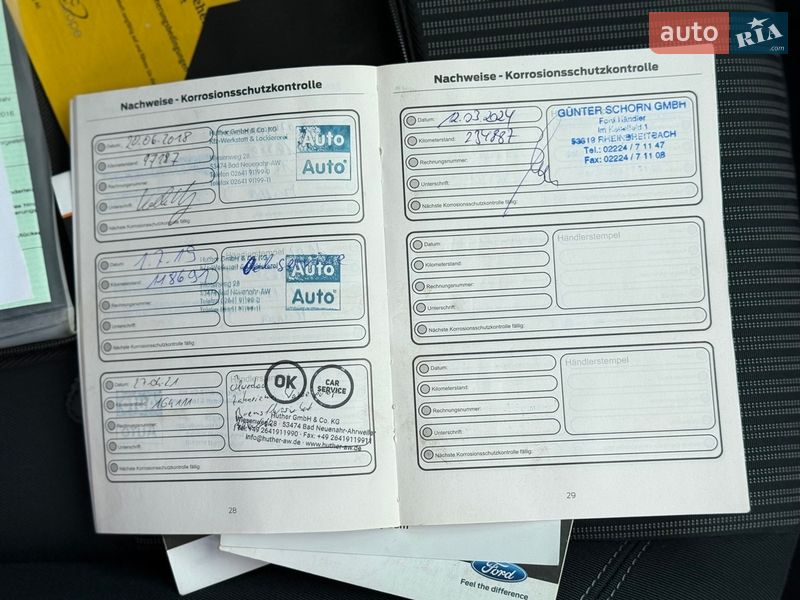 auto RIA .com
Nachweise - Korrosionsschutzkontrolle
Datum: 20.06.2018
Kilometerstand: 97187
Rechnungsnummer:
Unterschrift:
Nächste Korrosionsschutzkontrolle fällig:
Huther GmbH & Co. KG
Kfz-Werkstatt & Lackiererei
53474 Bad Neuenahr-AW
Telefon 02641 91199-0
Telefax 02641 91199-11
Auto
Auto
Datum: 1.7.19
Kilometerstand:
Rechnungsnummer:
Unterschrift:
Nächste Korrosionsschutzkontrolle fällig:
Händlerstempel
Huther GmbH & Co. KG
28
53474 Bad Neuenahr-AW
Auto
Auto
Datum: 27.04.21
164111
Unterschrift
Nächste Korrosionsschutzkontrolle fällig:
OK
CAR SERVICE
Huther GmbH & Co. KG
28 · 53474 Bad Neuenahr-Ahrweiler
+49 2641911990 · Fax: +49 26419119911
info@huther-aw.de · www.huther-aw.de
28
Nachweise - Korrosionsschutzkontrolle
Datum: 12.03.2024
Kilometerstand: 234887
Rechnungsnummer:
Unterschrift:
Nächste Korrosionsschutzkontrolle fällig:
GÜNTER SCHORN GMBH
Ford Händler
53619 RHEINBREITBACH
Tel.: 02224 / 7 11 47
Fax: 02224 / 7 11 08
Datum:
Kilometerstand:
Rechnungsnummer:
Unterschrift:
Nächste Korrosionsschutzkontrolle fällig:
Händlerstempel
Datum:
Kilometerstand:
Rechnungsnummer:
Unterschrift:
Nächste Korrosionsschutzkontrolle fällig:
Händlerstempel
29
Ford
Feel the difference